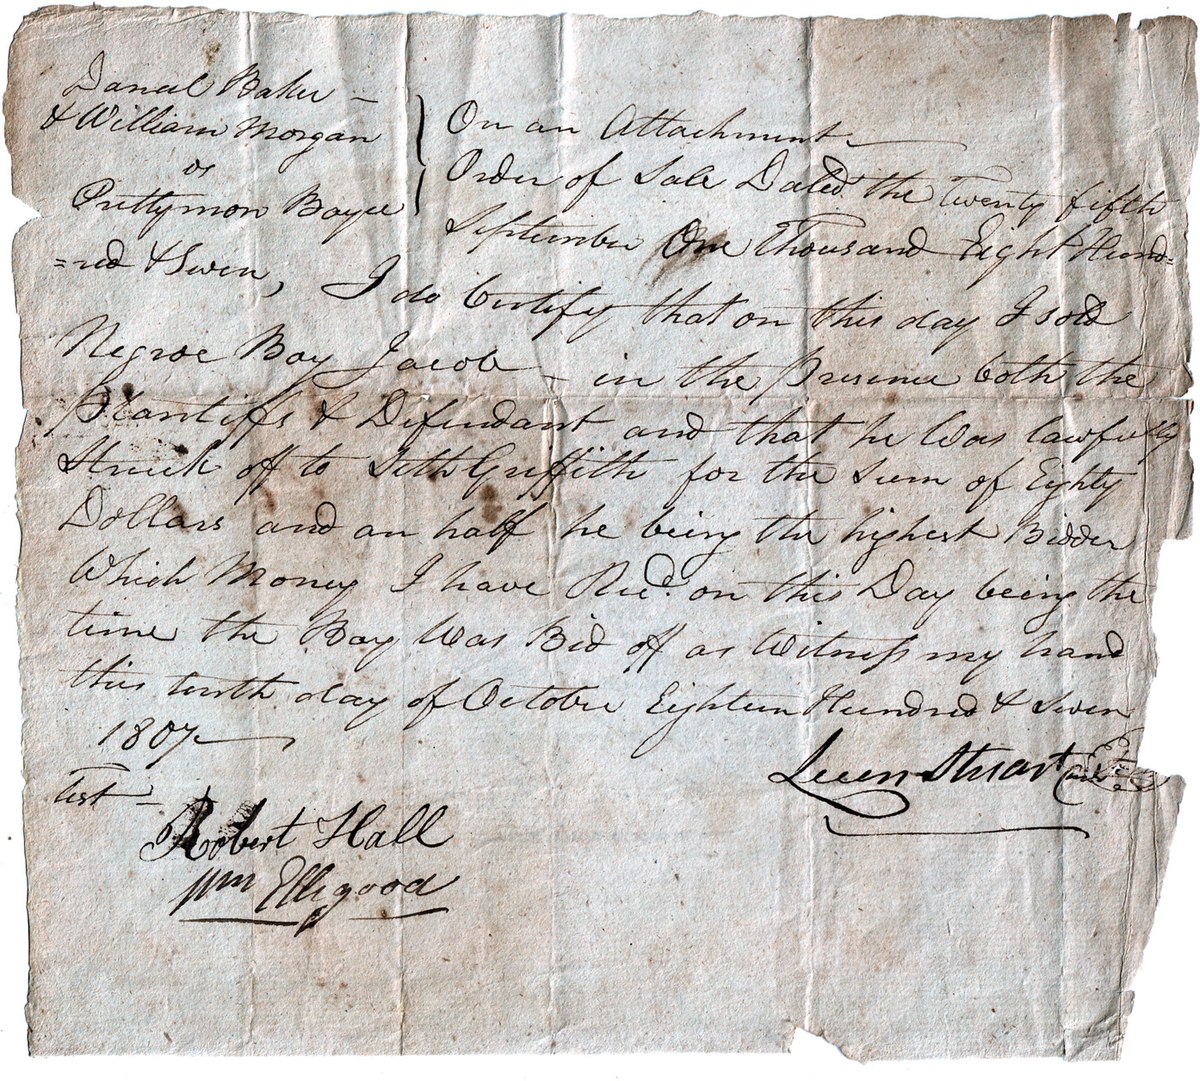 Daneel Baker –
& William Morgan
vs
Prettymon Boyce
On an Attachment
Order of Sale Dated the Twenty fifth
September One Thousand Eight Hund=
=red & Seven, I do Certify that on this day I sold
Negroe Boy Jacob – in the Presence both the
Plantiffs & Defendant and that he Was lawfully
Struck off to Seth Griffith for the Sum of Eighty
Dollars and an half he being the highest Bidder
Which Money I have Recd. on this Day being the
time the Boy Was Bid off as Witness my hand
this tenth day of October Eighteen Hundred & Seven
1807
Test –
Leven Stuart
Robert Hall
Wm Ellegood